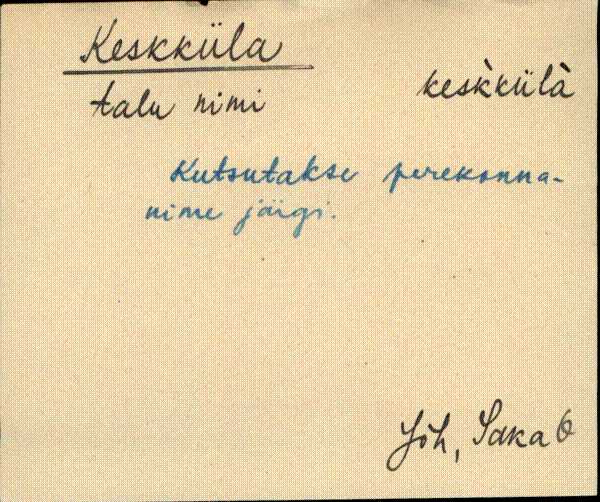 Keskküla
talu nimi keskkülà
Kutsutakse perekonna-
nime järgi.
Jõh, Saka 6